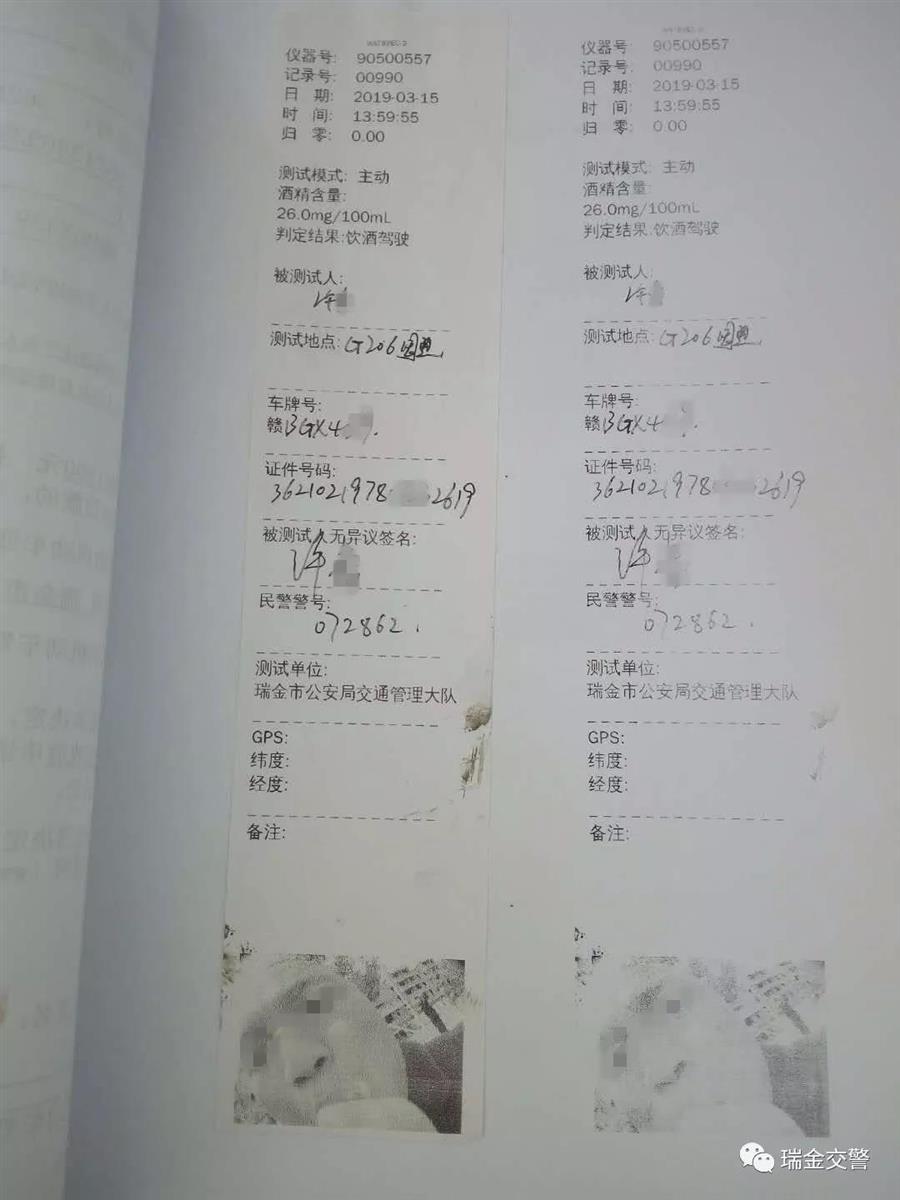 仪器号: 90500557
记录号: 00990
日 期: 2019-03-15
时 间: 13:59:55
归 零: 0.00
测试模式: 主动
酒精含量:
26.0mg/100mL
判定结果:饮酒驾驶
被测试人:
许
测试地点: G206
车牌号:
赣BGX4
证件号码:
3621021978 2619
被测试人无异议签名:
许
民警警号:
072862.
测试单位:
瑞金市公安局交通管理大队
GPS:
纬度:
经度:
备注:
仪器号: 90500557
记录号: 00990
日 期: 2019-03-15
时 间: 13:59:55
归 零: 0.00
测试模式: 主动
酒精含量:
26.0mg/100mL
判定结果:饮酒驾驶
被测试人:
许
测试地点: G206
车牌号:
赣BGX4
证件号码:
3621021978 2619
被测试人无异议签名:
许
民警警号:
072862.
测试单位:
瑞金市公安局交通管理大队
GPS:
纬度:
经度:
备注:
瑞金交警